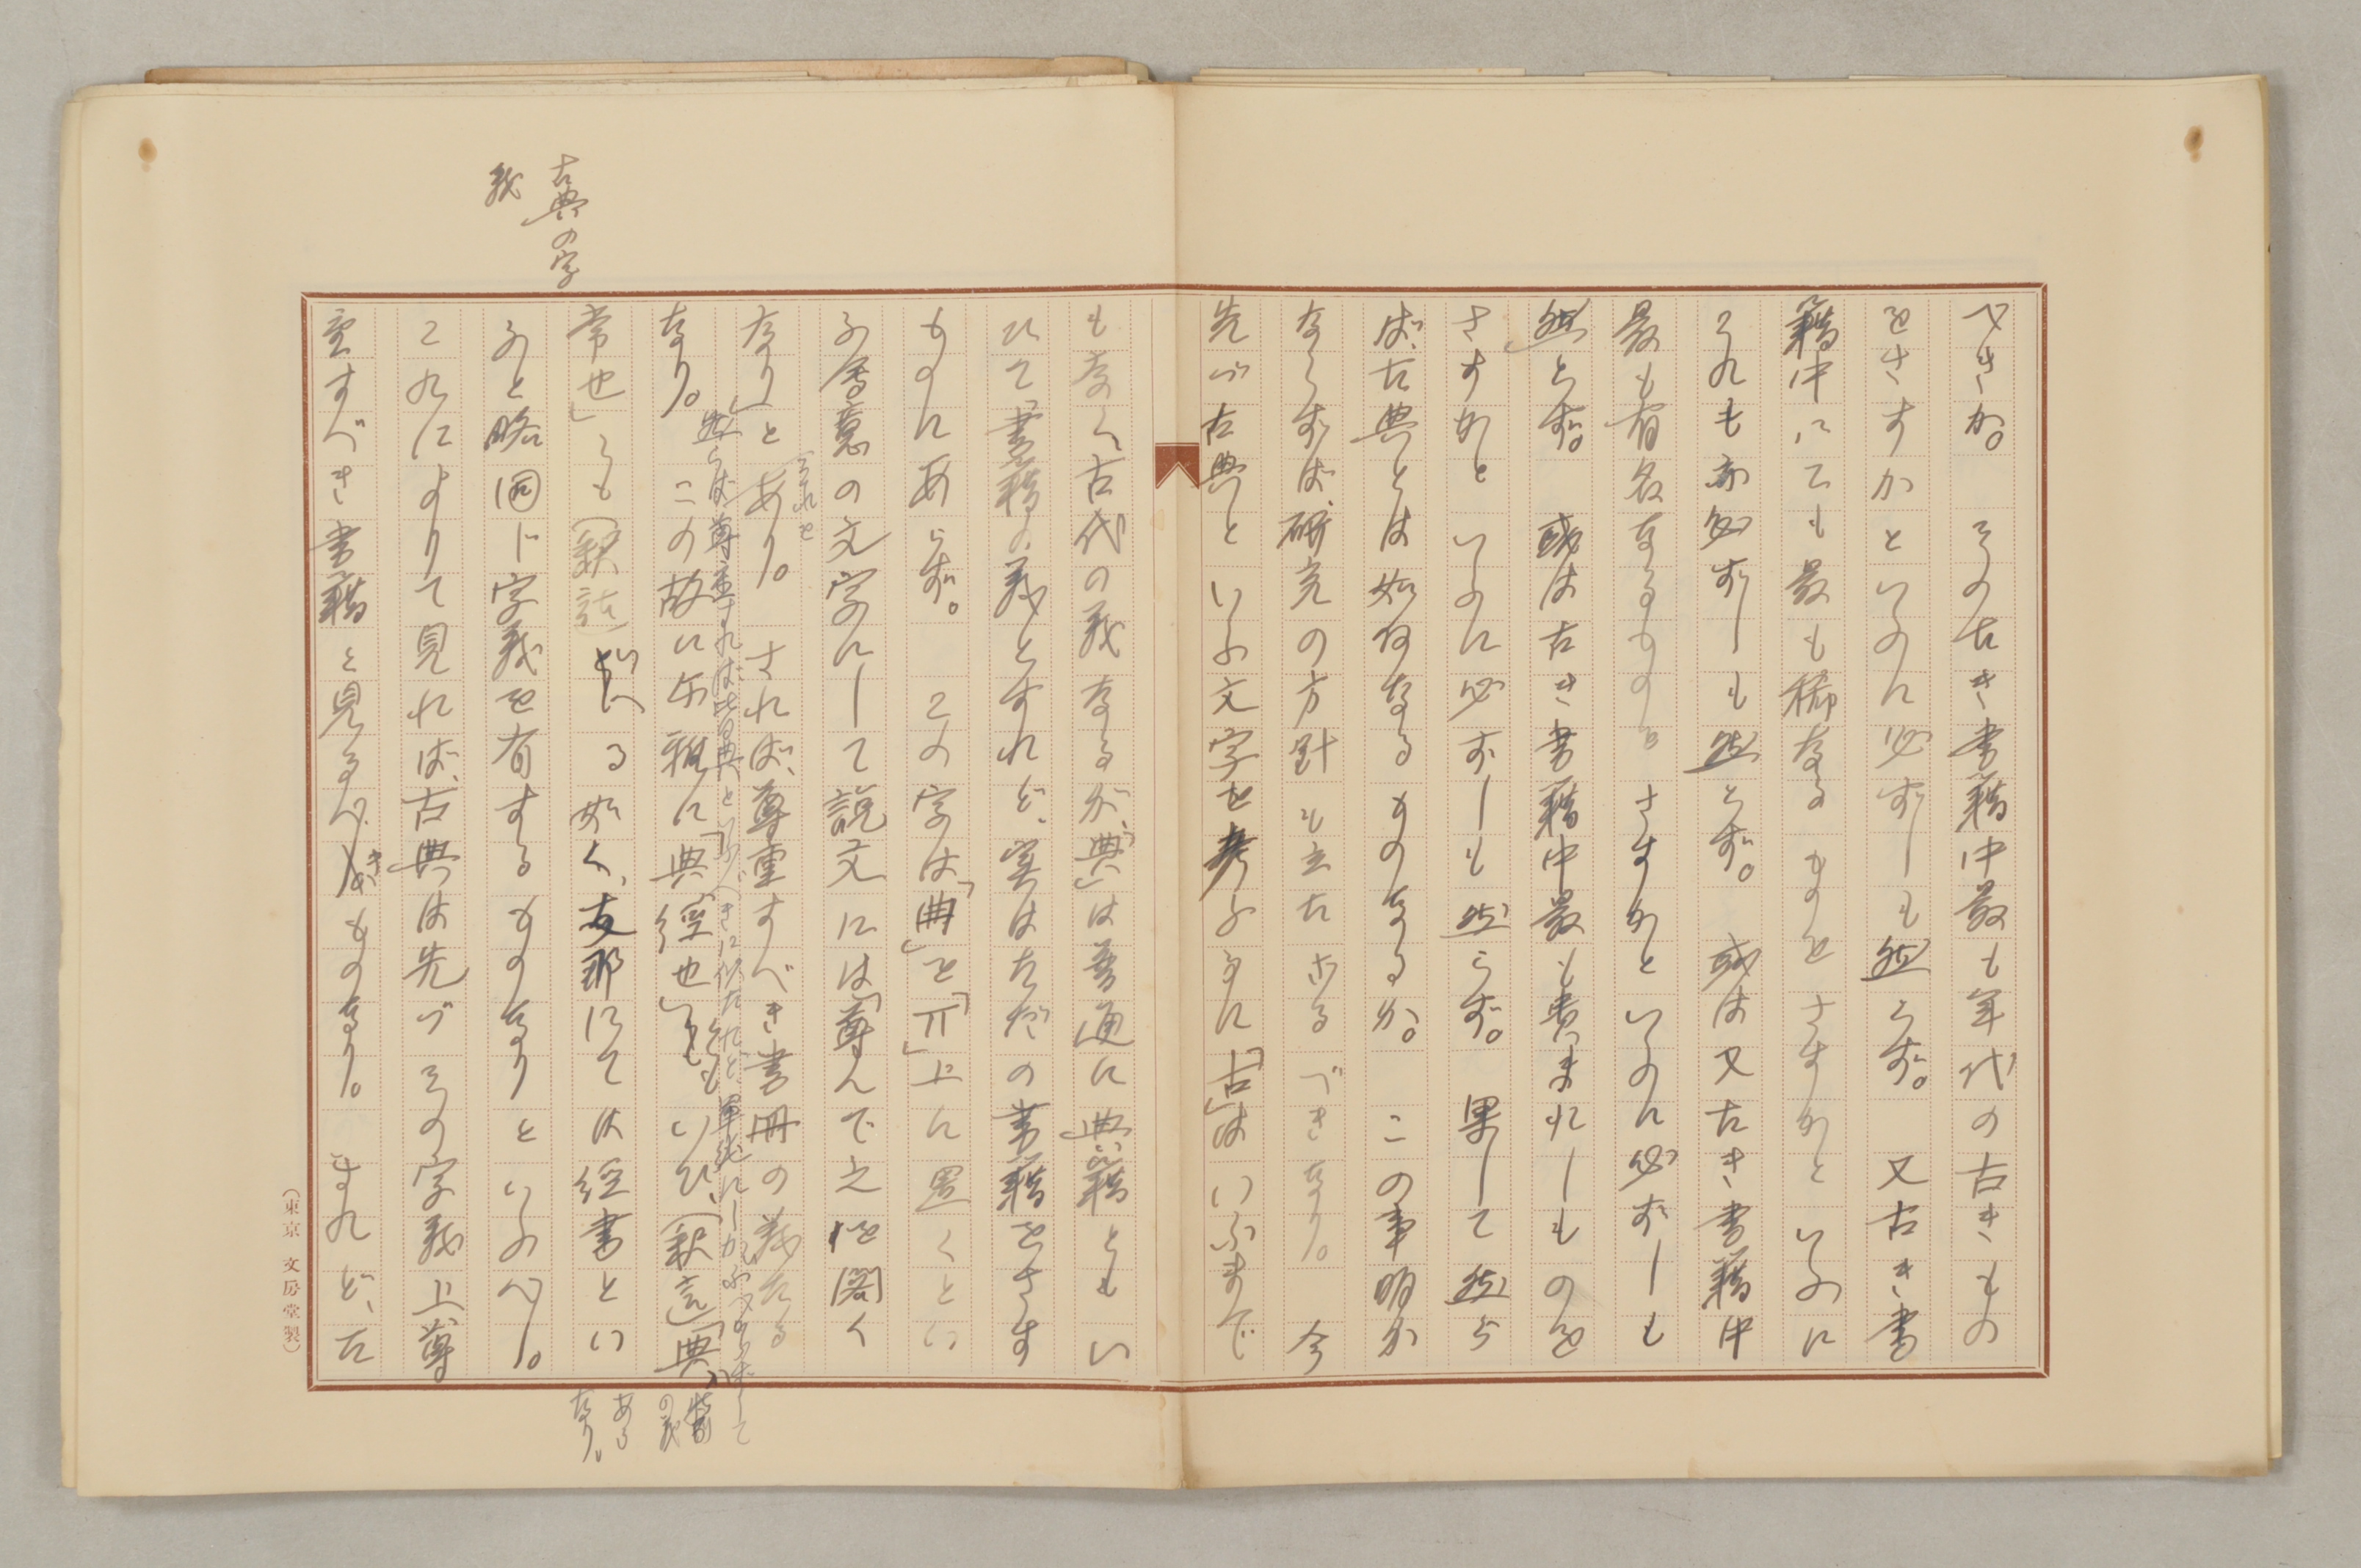 べきか。　その古き書籍中最も年代の古きもの
をさすかといふに必ずしも然らず。　又古き書
籍中にても最も稀なるものをさすかといふに
それも亦必ずしも然らず。　或は又古き書籍中
最も有名なるものをさすかといふに必ずしも
然らず。　或は古き書籍中最も貴ばれしものを
さすかといふに必ずしも然らず。　果して然ら
ば、古典とは如何なるものなるか。　この事明か
ならずば、研究の方針も立たざるべきなり。　今
先づ古典といふ文字を考ふるに「古」はいふまで
も なく、古代の義なるが、「典」は普通に典籍ともい
ひて書籍の義とすれど、実はただの書籍をさす
ものにあらず。　この字は「冊」を「丌」上に置くとい
ふ会意の文字にして説文には「尊んで之を閣く
なり」とあり。　されば、尊重すべき書冊の義なる
それを
然らば尊重すれば皆典といふべきに似たれど、単純にしかいふべからずして
なり。　この故に爾雅に「典経也」ともいひ、(釈言)「典
常也」とも(釈詁)いへる如く、支那にては経書とい
特別の義
あるなり。
ふと略同じ字義を有するものなりといふべし。
古典の字
義
これによりて見れば、古典は先づその字義上尊
重すべき書籍と見るべきものなり。　されど、た
(東京 文房堂製)